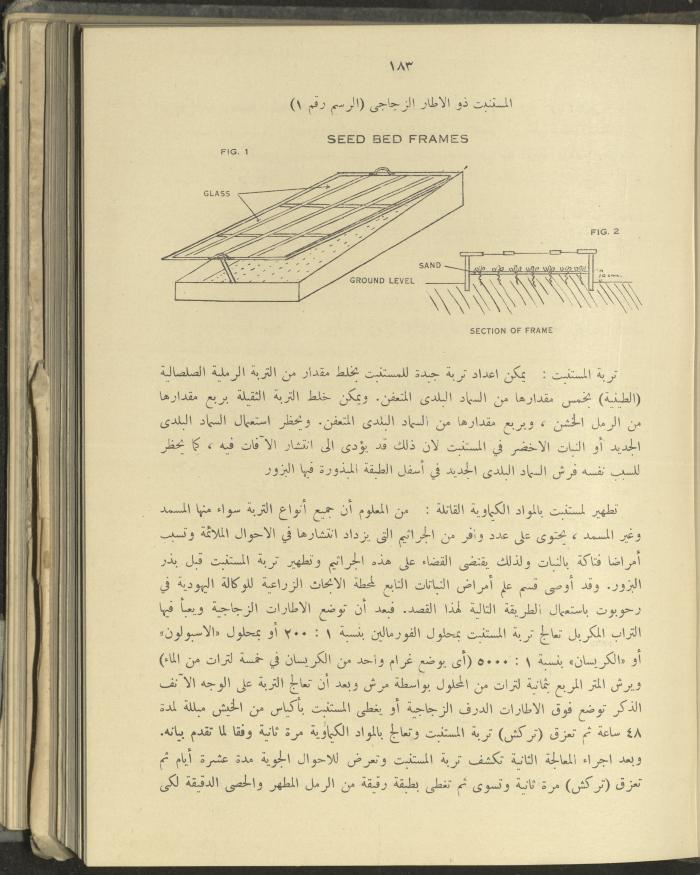 ١٨٣
المستنبت ذو الاطار الزجاجى (الرسم رقم ١)
SEED BED FRAMES
FIG. 1
GLASS
FIG. 2
SAND
GROUND LEVEL
SECTION OF FRAME
تربة المستنبت : يمكن اعداد تربة جيدة للمستنبت بخلط مقدار من التربة الرملية الصلصالية
(الطينية) بخمس مقدارها من السماد البلدى المتعفن. ويمكن خلط التربة الثقيلة بربع مقدارها
من الرمل الخشن ، وبربع مقدارها من السماد البلدى المتعفن. ويحظر استعمال السماد البلدى
الجديد أو النبات الاخضر في المستنبت لان ذلك قد يؤدى الى انتشار الآفات فيه ، كما يحظر
للسبب نفسه فرش السماد البلدى الجديد في أسفل الطبقة المبذورة فيها البزور
تطهير لمستنبت بالمواد الكيماوية القاتلة : من المعلوم أن جميع أنواع التربة سواء منها المسمد
وغير المسمد ، يحتوى على عدد وافر من الجراثيم التى يزداد انتشارها في الاحوال الملائمة وتسبب
أمراضا فتاكة بالنبات ولذلك يقتضى القضاء على هذه الجراثيم وتطهير تربة المستنبت قبل بذر
البزور. وقد أوصى قسم علم أمراض النباتات التابع لمحطة الابحاث الزراعية للوكالة اليهودية في
رحوبوت باستعمال الطريقة التالية لهذا القصد. فبعد أن توضع الاطارات الزجاجية ويعبأ فيها
التراب المكربل تعالج تربة المستنبت بمحلول الفورمالين بنسبة ١ : ٢٠٠ أو بمحلول «الاسبولون»
أو «الكريسان» بنسبة ١ : ٥٠٠٠ (أى يوضع غرام واحد من الكريسان في خمسة لترات من الماء)
ويرش المتر المربع بثمانية لترات من المحلول بواسطة مرش وبعد أن تعالج التربة على الوجه الآنف
الذكر توضع فوق الاطارات الدرف الزجاجية أو يغطى المستنبت بأكياس من الخيش مبللة لمدة
٤٨ ساعة ثم تعزق (تركش) تربة المستنبت وتعالج بالمواد الكيماوية مرة ثانية وفقا لما تقدم بيانه.
وبعد اجراء المعالجة الثانية تكشف تربة المستنبت وتعرض للاحوال الجوية مدة عشرة أيام ثم
تعزق (تركش) مرة ثانية وتسوى ثم تغطى بطبقة رقيقة من الرمل المطهر والحصى الدقيقة لكى